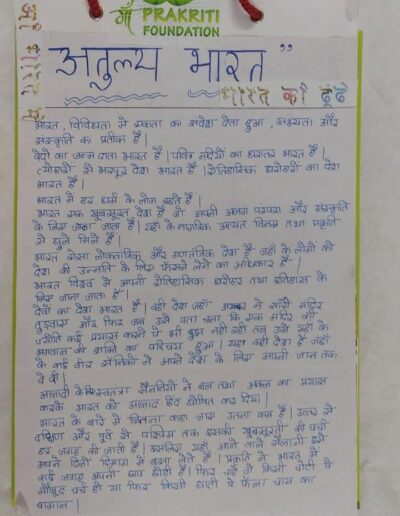 माँ PRAKRITI
FOUNDATION
अतुल्य भारत "
भारत, विविधता में एकता का संदेश देता हुआ, सभ्यता और
संस्कृति का प्रतीक है |
वेदों का जन्म दाता भारत है | पवित्र नदियों का धरातर भारत है |
त्योहारों से भरपूर देश भारत है | ऐतिहासिक धरोहरों का देश
भारत है |
भारत में हर धर्म के लोग रहते हैं |
भारत एक खूबसूरत देश है जो अपनी अलग परंपरा और संस्कृति
के लिए जाना जाता है | यहाँ के नागरिक अत्यंत विनम्र तथा प्रकृति
से घुले मिले हैं |
भारत ऐसा लोकतांत्रिक और गणतंत्रिक देश है जहाँ के लोगों को
देश की उन्नति के लिए फैसले लेने का अधिकार है |
भारत विश्व में अपनी ऐतिहासिक धरोहर तथा इतिहास के
लिए जाना जाता है |
देवों का देश भारत है | वही देश जहाँ अकबर ने सारी मंदिर
तुड़वाया और फिर जब उसे पता चला कि एक मंदिर की
ज्योति कई प्रयास करने पे भी बुझ नहीं रही तब उसे यहाँ के
भगवान की शक्ति का परिचय हुआ | यहा वही देश है जहाँ
के कई वीर सैनिकों ने अपने देश के लिए अपनी जान तक
दे दी |
आजादी के स्वतंत्रता सैनानियों ने बल तथा अक्ल का प्रयास
करके भारत को आजाद हिंद घोषित कर दिया |
भारत के बारे में जितना कहा जाए उतना कम है | उत्तर से
दक्षिण और पूर्व से पश्चिम तक इसकी खूबसूरती की चर्चा
हर जगह की जाती है | इसलिए यहाँ आने वाले सैलानी इसे
अपने दिलो दिमाग में बसा लेते हैं | प्रकृति ने भारत में
कई जगह अपनी छाप छोड़ी है | फिर चाहे वो किसी चोटी पे
मौजूद चर्च हो या फिर किसी घाटी पे फैला चाय का
बागान |